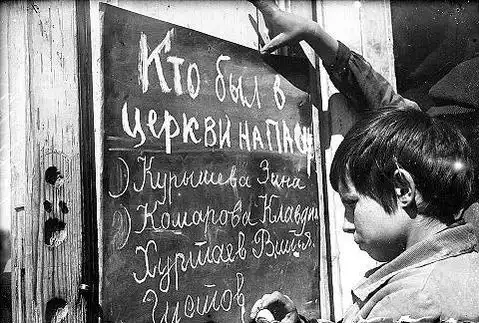 Кто был в
церкви на Пасх
1) Курышева Зина
2) Комарова Клавдия
Хуртаев Витья.